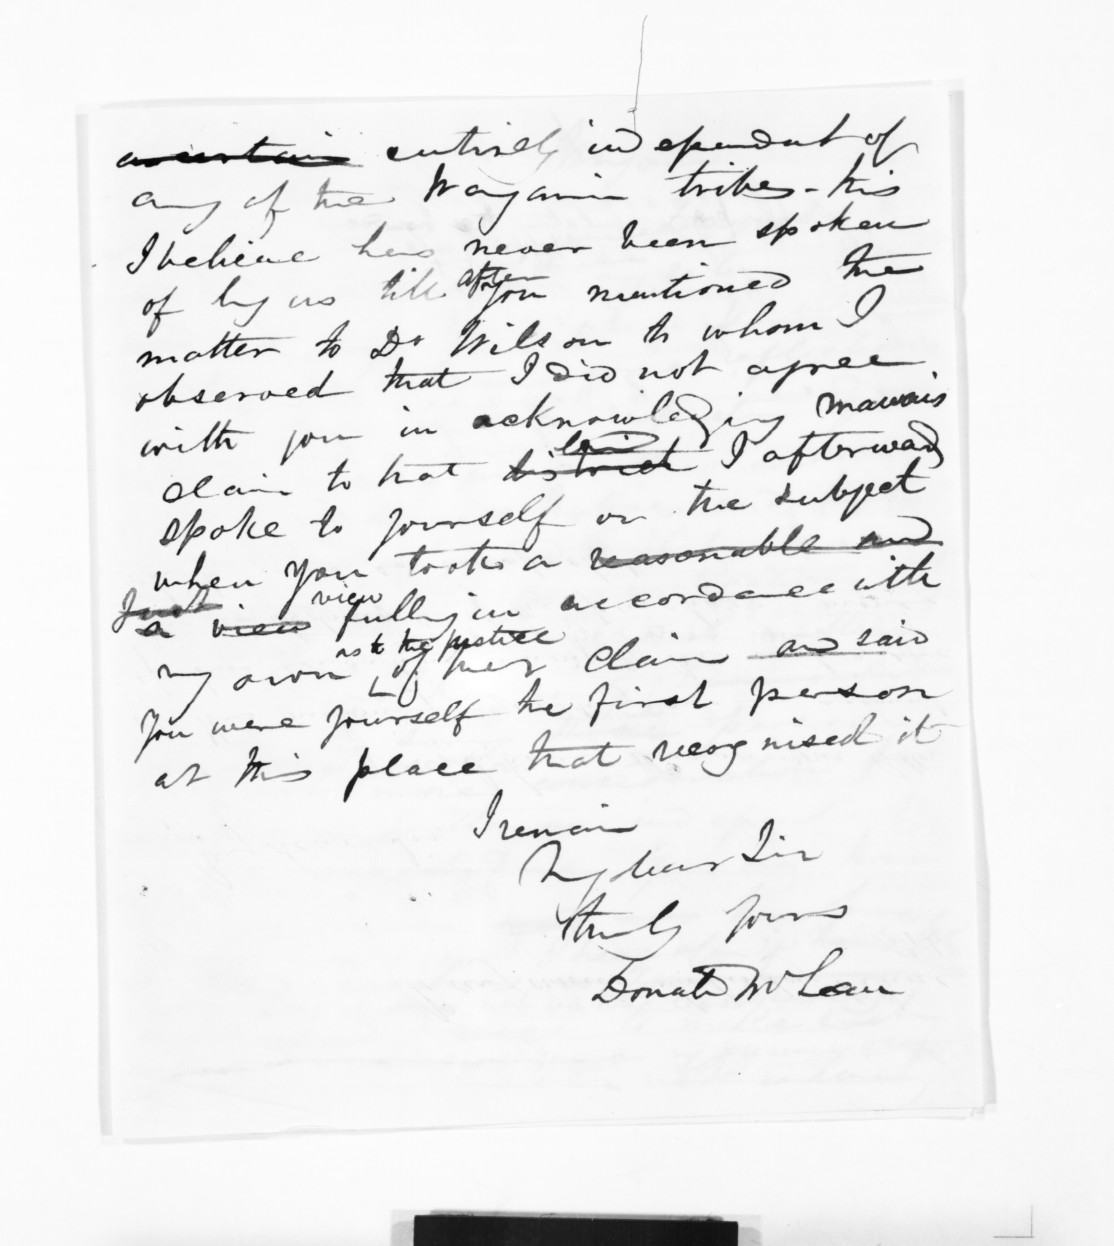 ascertain entirely independent of
any of the Wanganui tribes - this
I believe has never been spoken
of by us till after you mentioned the
matter to Dr Wilson to whom I
observed that I did not agree
with you in acknowledging mawais
claim to that land district I afterwards
spoke to yourself on the subject
when you took a reasonable and
Just a view view fully in accordance with
my own as to the justice of her claim and said
you were yourself the first person
at this place that recognised it
I remain
My dear Sir
truly yours
Donald McLean